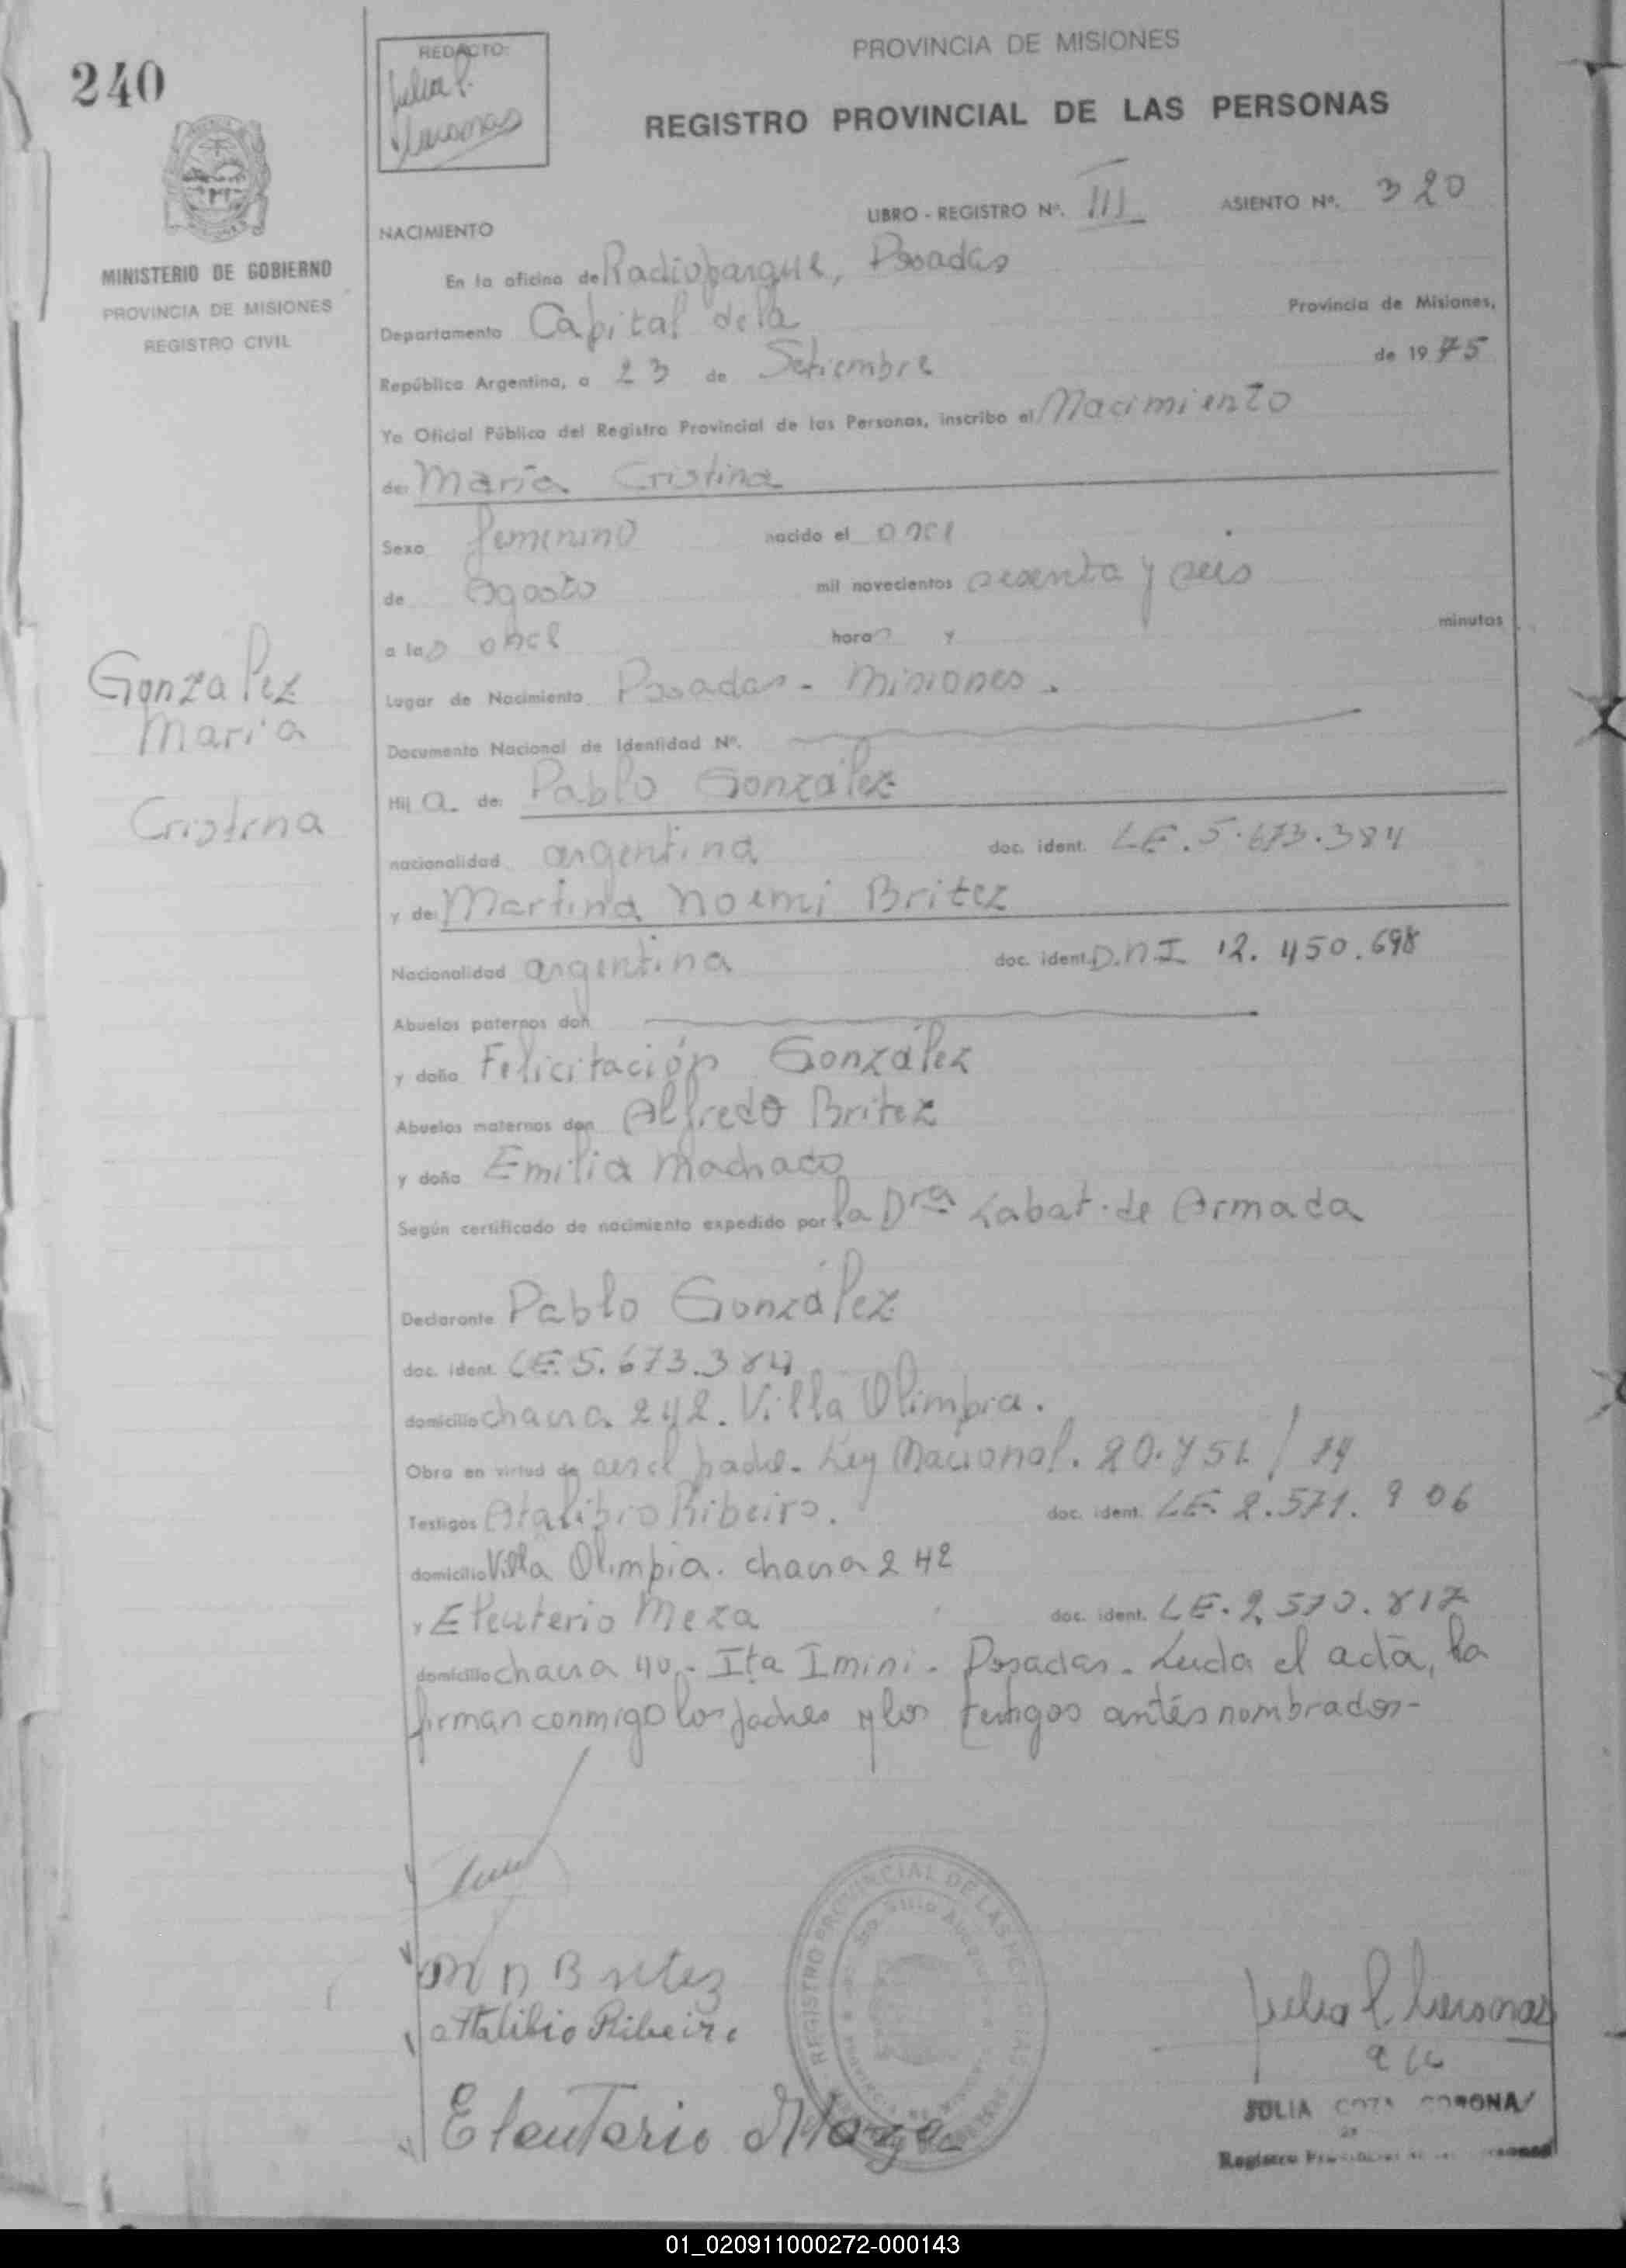 240
REDACTO:
Julia P.
PROVINCIA DE MISIONES
REGISTRO PROVINCIAL DE LAS PERSONAS
LIBRO - REGISTRO Nº. III ASIENTO Nº. 320
NACIMIENTO
MINISTERIO DE GOBIERNO
PROVINCIA DE MISIONES
REGISTRO CIVIL
En la oficina de Radioparque, Posadas
Departamento Capital de la Provincia de Misiones,
República Argentina, a 23 de Setiembre de 1975
Yo Oficial Público del Registro Provincial de las Personas, inscribo el Nacimiento
de: María Cristina
Sexo femenino nacido el once
de agosto mil novecientos sesenta y seis
a las once horas y minutos
Lugar de Nacimiento Posadas - Misiones.
Gonzalez
Maria
Cristina
Documento Nacional de Identidad Nº.
Hij a. de: Pablo González
nacionalidad argentina doc. ident. LE. 5.673.384
y de: Martina Noemi Britez
Nacionalidad argentina doc. ident. D.N.I 12.450.698
Abuelos paternos don
y doña Felicitación González
Abuelos maternos don Alfredo Britez
y doña Emilia Machado
Según certificado de nacimiento expedido por la Dra Labat de Armada
Declarante Pablo González
doc. ident. LE. 5.673.384
domicilio chacra 242. Villa Olimpia.
Obra en virtud de ser el padre. Ley Nacional. 20.751/74
Testigos Atalibio Ribeiro. doc. ident. LE. 2.571.906
domicilio Villa Olimpia. chacra 242
y Eleuterio Meza doc. ident. LE. 2.570.817
domicilio chacra 40 - Ita Imini - Posadas - Leida el acta, la
firman conmigo los padres y los testigos antés nombrados-
M N Britez
Atalibio Ribeiro
Eleuterio Meza
REGISTRO PROVINCIAL DE LAS
Julia
JULIA CORONA
Registro
01_020911000272-000143